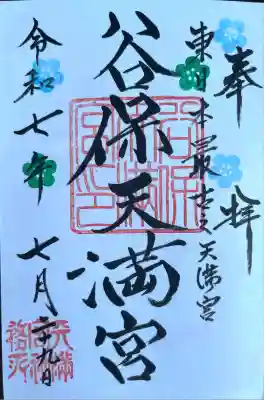 奉拝
東日本最古之天満宮
谷保天満宮
令和七年七月二十九日